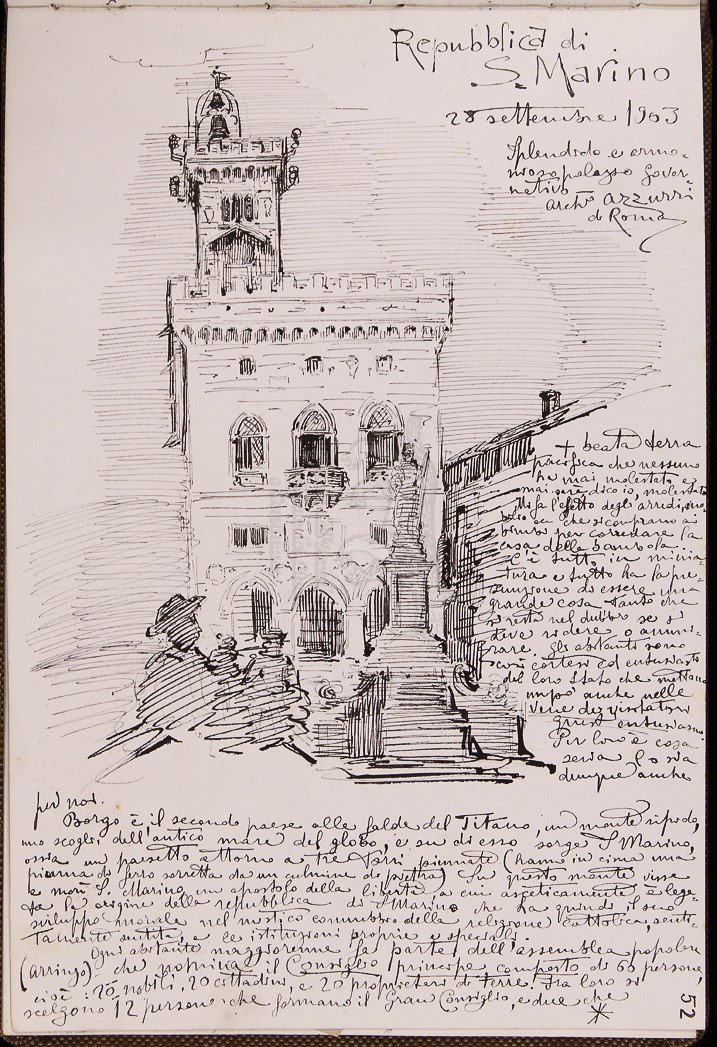 Repubblica di
S. Marino
28 settembre 1903
Splendido e armo-
nioso palazzo Gover-
nativo
Archo Azzurri
di Roma
+ beata terra
pacifica che nessuno
ha mai molestato e
mai sarà dico io, molestato
Mi fa l'effetto degli arredi
che si comprano ai
bimbi per corredare la
casa della bambola.
C'è tutto in minia-
tura e tutto ha la pre-
sunzione di essere una
grande cosa tanto che
si resta nel dubbio se si
deve ridere o ammi-
rare. Gli abitanti sono
così cortesi ed entusiasti
del loro Stato che mettono
anche nelle
vene dei visitatori
questo entusiasmo.
Per loro è cosa
seria lo sia
dunque anche
per noi.
Borgo è il secondo paese alle falde del Titano, un monte ripido,
uno scoglio dell'antico mare del globo, e su di esso sorge S. Marino,
ossia un paesetto attorno a tre Torri piumate (hanno in cima una
piuma di ferro sorretta da un culmine di pietra) Su questo monte visse
e morì S. Marino un apostolo della libertà, a cui asceticamente è lega-
ta la origine della repubblica di S. Marino che ha quindi il suo
sviluppo morale nel mistico connubio della religione cattolica,
sentita, e le istituzioni proprie e speciali.
Ogni abitante maggiorenne fa parte dell'assemblea popolare
(arringo) che nomina il Consiglio principe composto di 60 persone,
cioè: 20 nobili, 20 cittadini, e 20 proprietari di terre. Fra loro si
scelgono 12 persone che formano il Gran Consiglio, e due che
*
52